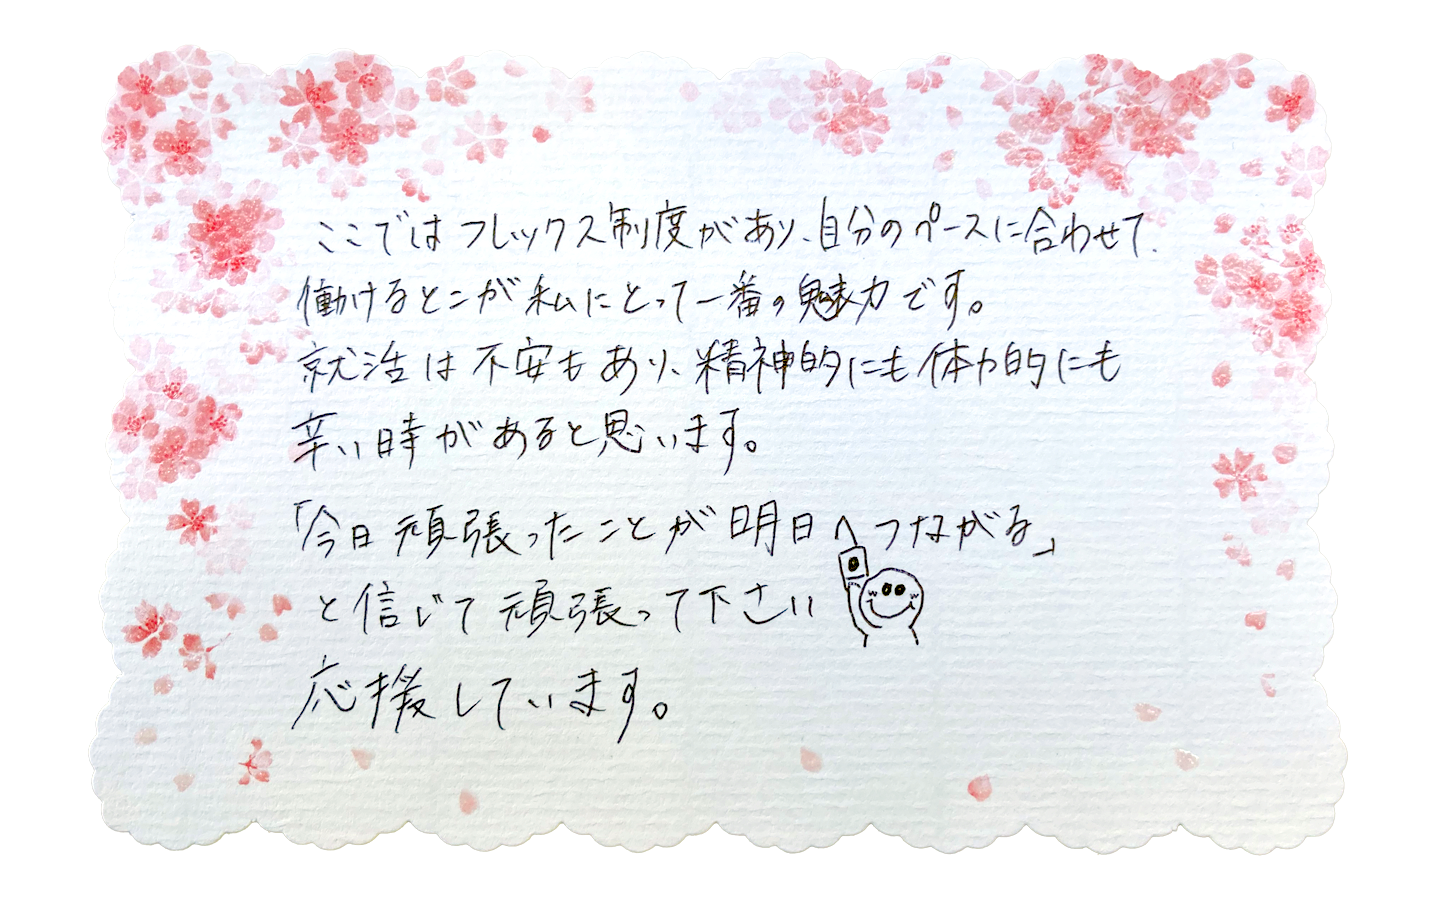 ここではフレックス制度があり、自分のペースに合わせて
働けるとこが私にとって一番の魅力です。
就活は不安もあり、精神的にも体力的にも
辛い時があると思います。
「今日頑張ったことが明日へつながる」
と信じて頑張って下さい
応援しています。